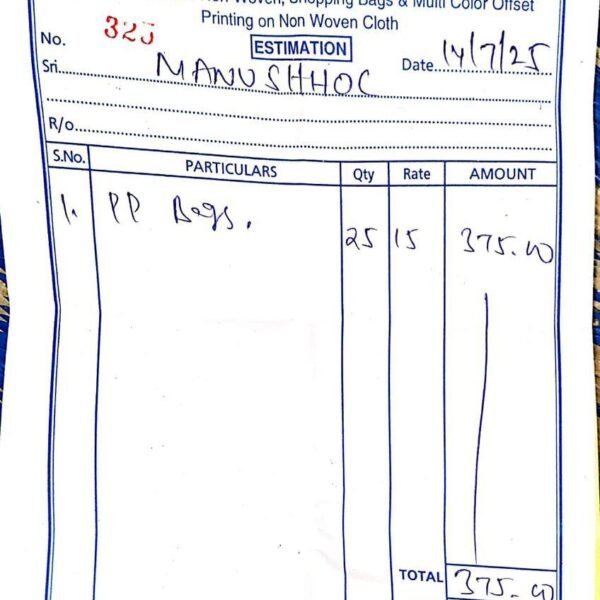 Woven, Shopping Bags & Multi Color Offset
Printing on Non Woven Cloth
No. 325
ESTIMATION
Date 14/7/25
Sri. MANUSHHOC
R/o.
S.No. PARTICULARS Qty Rate AMOUNT
1. PP Bags. 25 15 375.00
TOTAL 375.00